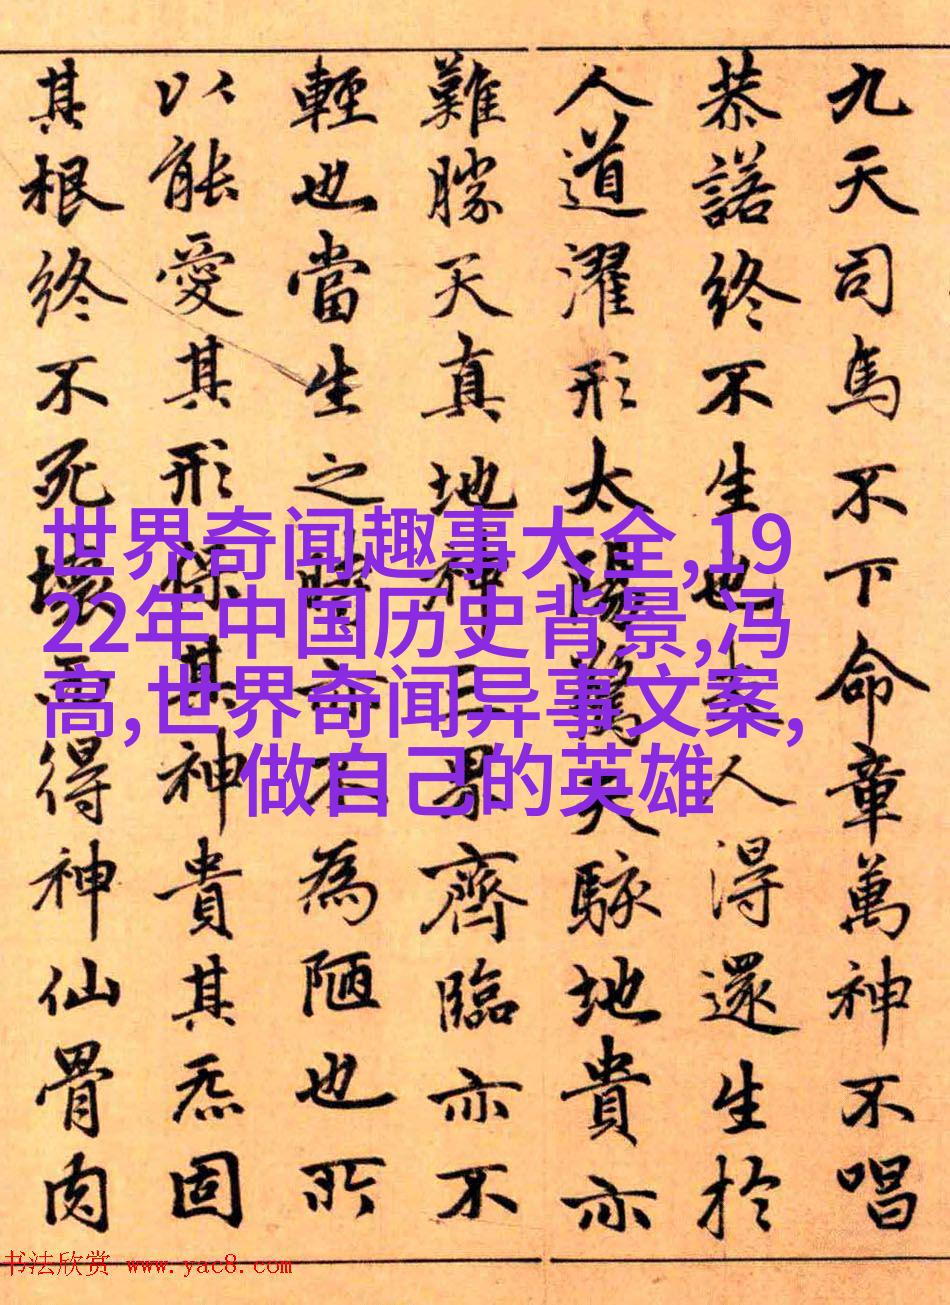 九天司馬不下命章萬神不唱
恭諾終不生也夫人得還生於
人道濯形太陽驚天駭地貴亦
難勝天真地神三界齊臨亦不
輕也當生之時亦不為陋也所
以能愛其形保其神貴其炁固
其根終不死壞而得神仙骨肉
世界奇闻趣事大全,19
22年中国历史背景,冯
高,世界奇闻异事文案,
做自己的英雄
书法欣赏 www.yac8.com